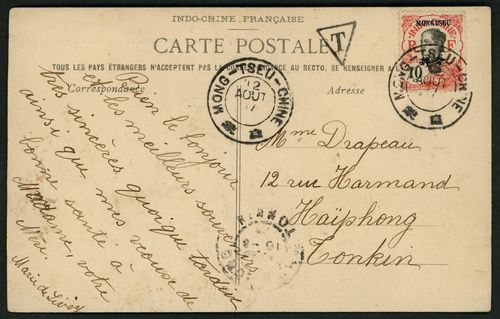 INDO-CHINE FRANÇAISE
CARTE POSTALE
T
MONGTSEU
INDO-CHINE
R F
10
TOUS LES PAYS ÉTRANGERS N'ACCEPTENT PAS LA CORRESPONDANCE AU RECTO. SE RENSEIGNER A LA
Correspondance
Adresse
MONG-TSEU-CHINE
12
AOUT
MONG-TSEU-CHINE
AOUT
Bien le bonjour
et les meilleurs souvenirs
très sincères quoique tardifs
ainsi que mes vœux de
bonne santé à
Madame, votre
Mère.
Marie de
Mme Drapeau
12 rue Harmand
Haïphong
Tonkin
TONKIN